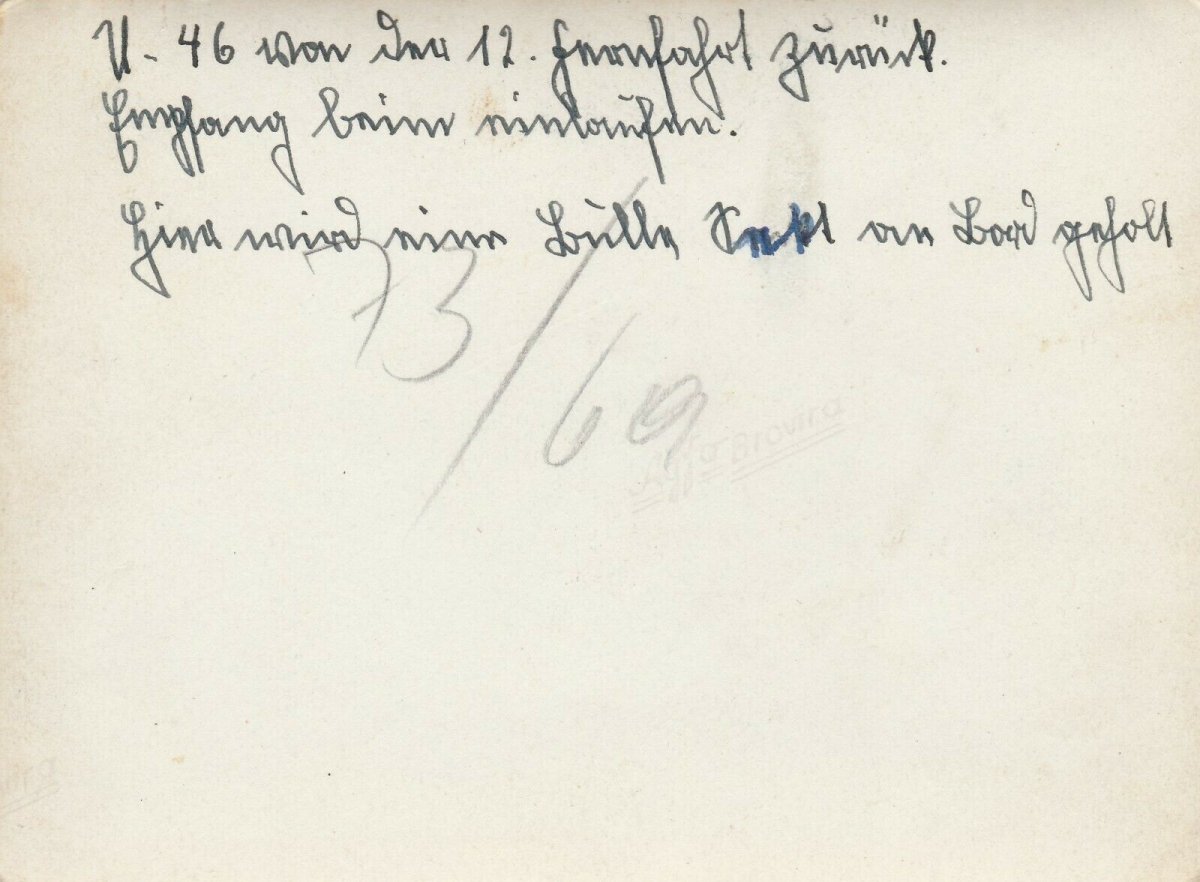 U-46 von der 12. Fernfahrt zurück.
Empfang beim einlaufen.
Hier wird eine Bulle Sekt an Bord geholt
73/69
Agfa Brovira